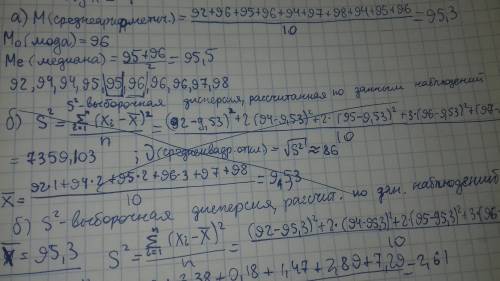 а) М (среднеарифметич.) = 92+96+95+96+94+97+98+94+95+96 / 10 = 95,3
Мо(мода) = 96
Ме (медиана) = 95+96 / 2 = 95,5
92, 94, 94, 95, 95, 96, 96, 96, 97, 98
S² - выборочная дисперсия, рассчитанная по данным наблюдений
б) S² = Σ i=1 n (x₂ - x̄)² / n = (92-9,53)² + 2(94-9,53)² + 2·(95-9,53)² + 3·(96-9,53)² + (97- / 10
= 7359,103 ; (среднеквадр. откл) = √S² ≈ 86
x̄ = 92·1+94·2+95·2+96·3+97+98 / 10 = 9,53
б) S² - выборочная дисперсия, рассчит. по дан. наблюдений
x̄ = 95,3 S² = Σ i=1 n (x₂ - x̄)² / n = (92-95,3)² + 2·(94-95,3)² + 2(95-95,3)² + 3·(96- / 10
3,38 + 0,18 + 1,47 + 2,89 + 7,29 = 2,61